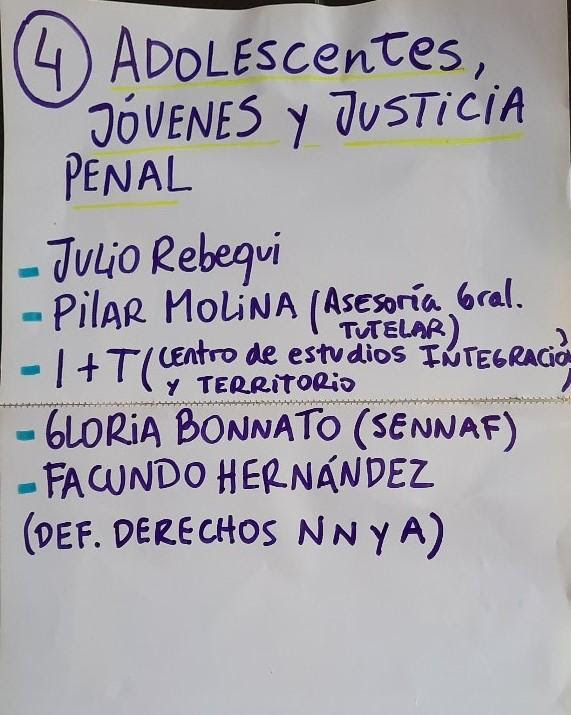 4 ADOLEScenTes,
JÓVENES y JUSTiCiA
PENAL
- JULiO Rebequi
- PilAR MOLiNA (Asesoría Gral.
TUTELAR)
- I + T (CENtro de estudios INTEGRACIÓ
y TERRiTORio)
- GLORiA BONNATO (SENNAF)
- FACUNDO HERNÁNDEZ
(DEF. DERECHOS NNyA)